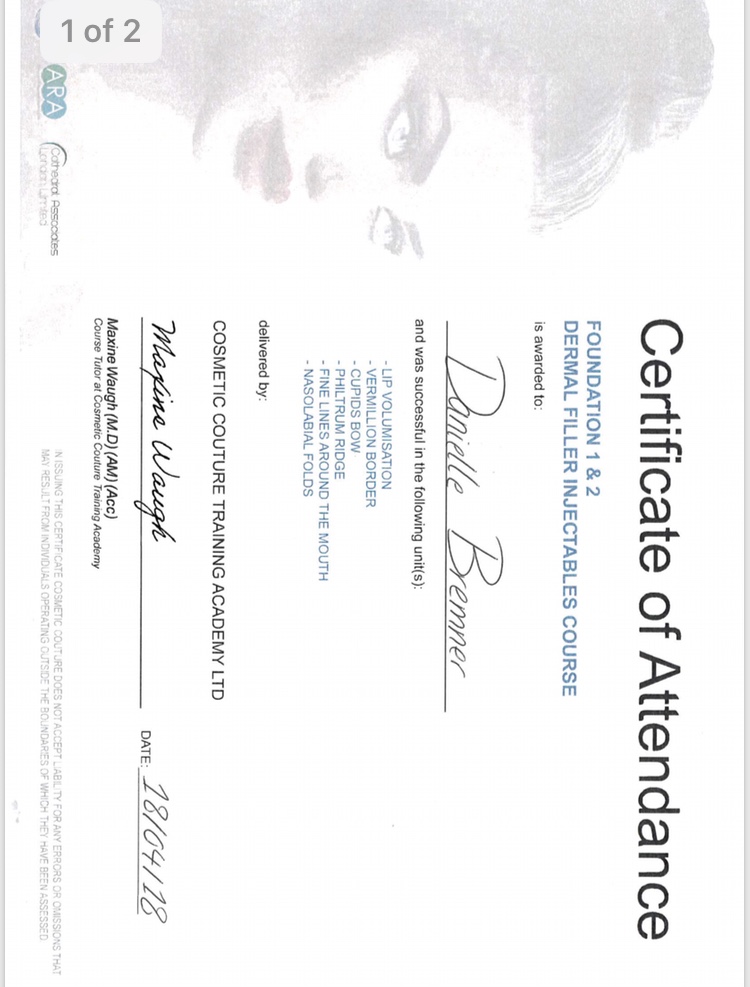 1 of 2
Certificate of Attendance
FOUNDATION 1 & 2
DERMAL FILLER INJECTABLES COURSE
is awarded to:
Danielle Bremner
and was successful in the following unit(s):
- LIP VOLUMISATION
- VERMILLION BORDER
- CUPIDS BOW
- PHILTRUM RIDGE
- FINE LINES AROUND THE MOUTH
- NASOLABIAL FOLDS
delivered by:
COSMETIC COUTURE TRAINING ACADEMY LTD
Maxine Waugh
DATE: 18/04/18
Maxine Waugh (M.D) (AM) (Acc)
Course Tutor at Cosmetic Couture Training Academy
ARA
Cathedral Associates
London Limited
IN ISSUING THIS CERTIFICATE COSMETIC COUTURE DOES NOT ACCEPT LIABILITY FOR ANY ERRORS OR OMISSIONS THAT
MAY RESULT FROM INDIVIDUALS OPERATING OUTSIDE THE BOUNDARIES OF WHICH THEY HAVE BEEN ASSESSED